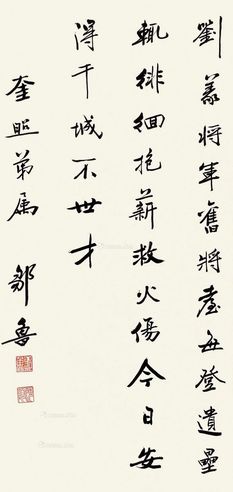 劉義將軍舊將臺每登遺壘
輒徘徊抱薪救火傷今日安
得干城不世才
奎照弟屬
鄒魯